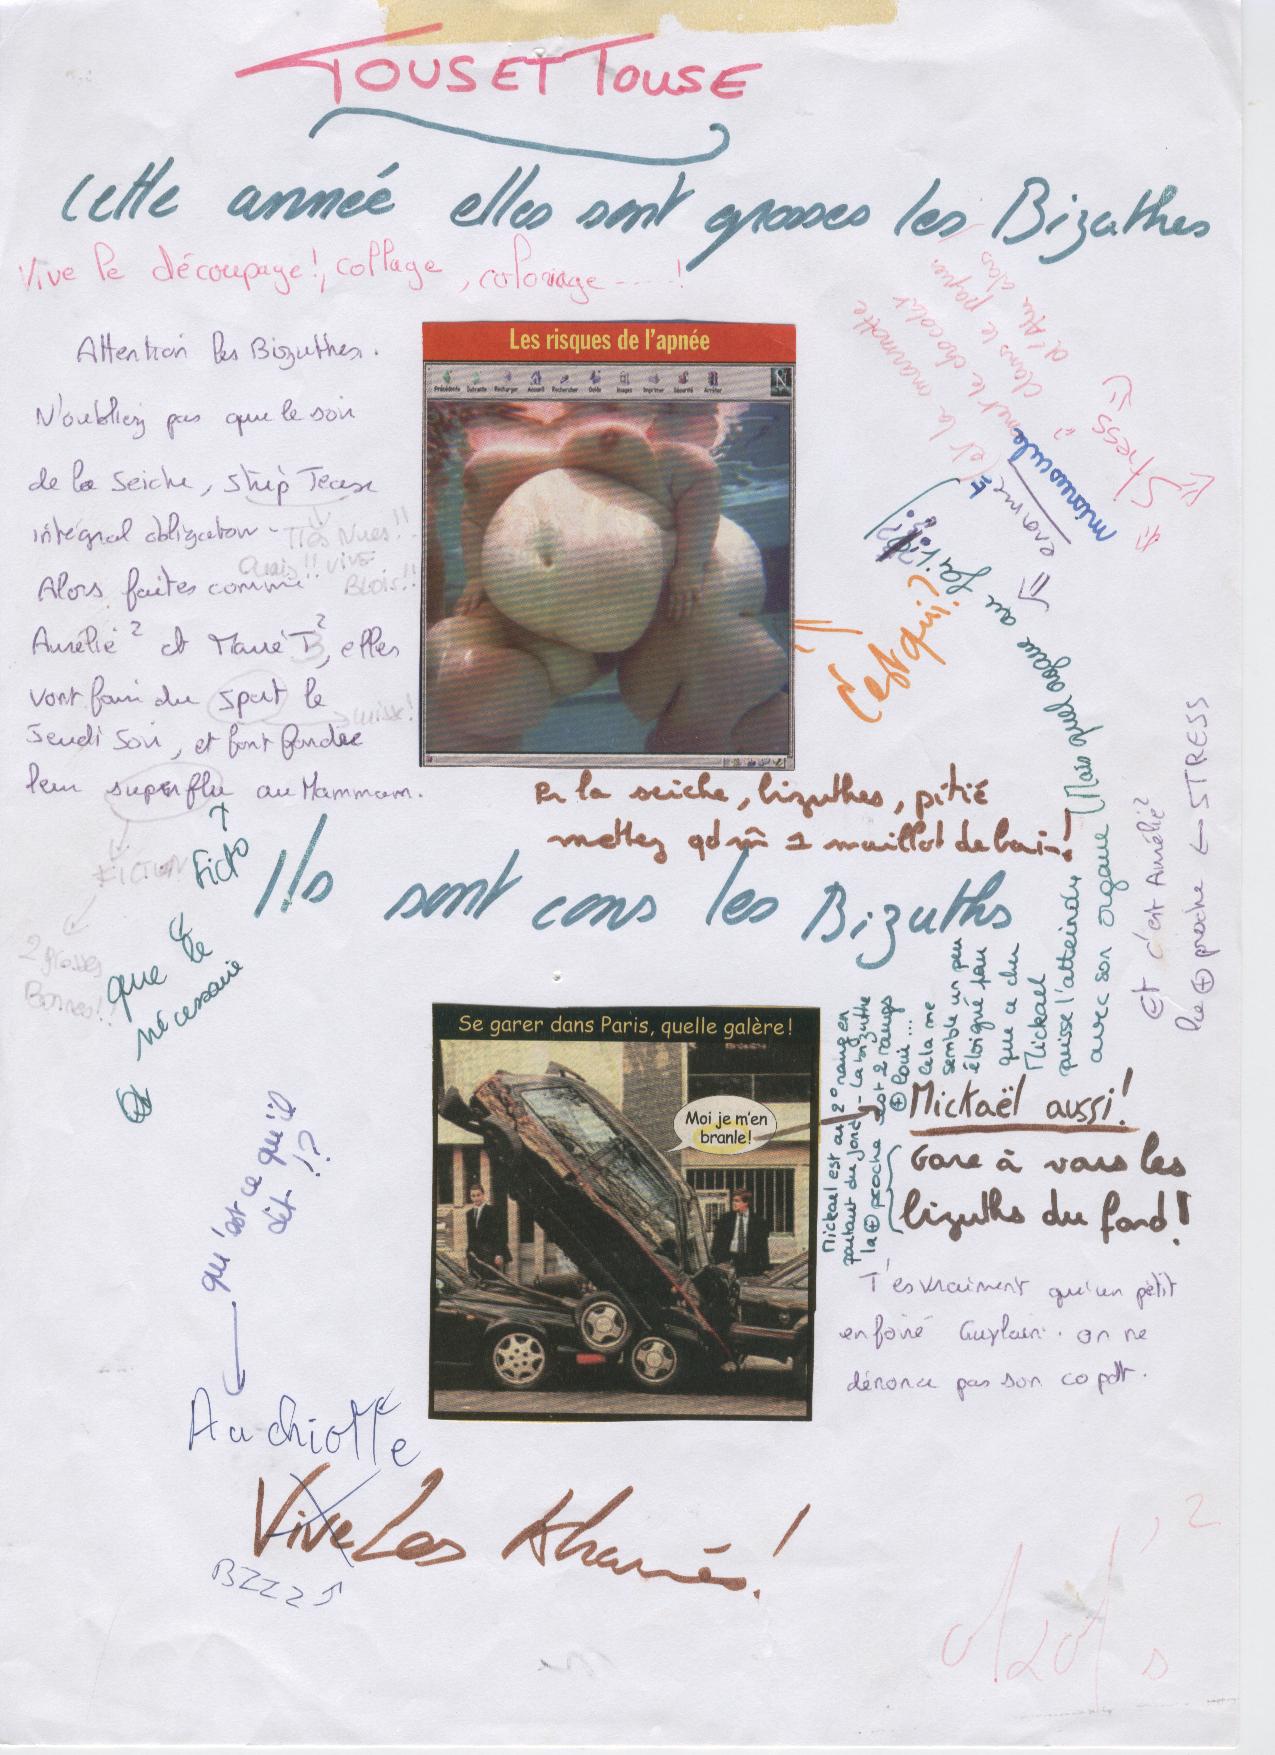 TOUS ET TOUSE
Cette année elles sont grosses les Bizuthes
Vive le découpage!, collage, coloriage-----!
Attention les Bizuthes.
N'oubliez pas que le soir
de la seiche, strip Tease
intégral obligation -
Très Nues!!
Ouais!! vive
Alors faites comme
Aurélie² et Marie B², elles
vont faire du sport le
Jeudi Soir, et font fondre
leur superflu au Hammam.
FICTION
2 grosses
Bonnes!!
Ficto
que le
nécessaire
Les risques de l'apnée
Précédente Suivante Recharger Accueil Rechercher Guide Images Imprimer Sécurité Arrêter
et la marmotte
met le chocolat
dans le papier
d'Alu alors
?
Stress
minuscule
énorme
C'est qui?
Mais quel organe au fait?
En la seiche, bizuthes, pitié
mettez qd m̂ 1 maillot de bain!
Ils sont cons les Bizuths
Se garer dans Paris, quelle galère!
Moi je m'en
branle!
Mickael est au 2° rang en
partant du fond - la bizuthe
la ⊕ proche est 2 rangs
⊕ loin ...
cela me
semble un peu
éloigné pour
que ce cher
Mickael
puisse l'atteindre
avec son organe
Et c'est Aurélie²
la ⊕ proche ← STRESS
Mickaël aussi!
Gare à vous les
bizuths du fond!
T'es vraiment qu'un petit
enfoiré Guylain. on ne
dénonce pas son copdt.
qu'est ce qu'il
dit !?
Au chiotte
Vive Les
BZZZ